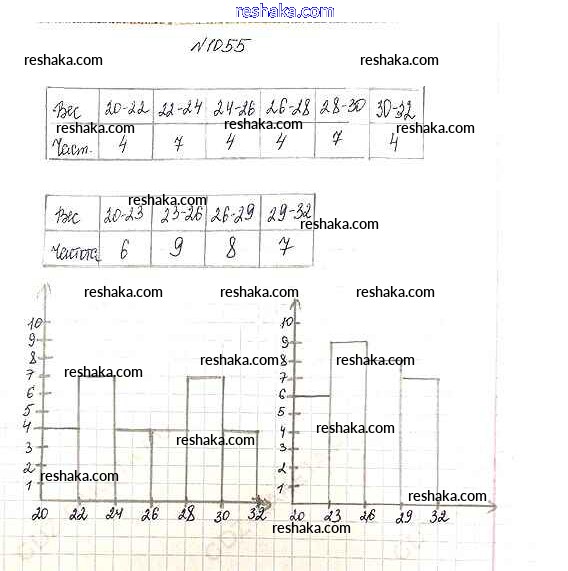 reshaka.com
№1055
reshaka.com reshaka.com
Вес 20-22 22-24 24-26 26-28 28-30 30-32
reshaka.com reshaka.com reshaka.com
Част. 4 7 4 4 7 4
reshaka.com
Вес 20-23 23-26 26-29 29-32
reshaka.com
Частота 6 9 8 7
reshaka.com reshaka.com reshaka.com
10 10
9 9
8 8
reshaka.com reshaka.com reshaka.com
7 7
6 6
5 5
4 4
reshaka.com reshaka.com
3 3
2 2
reshaka.com reshaka.com
1 1
20 22 24 26 28 30 32 20 23 26 29 32
reshaka.com